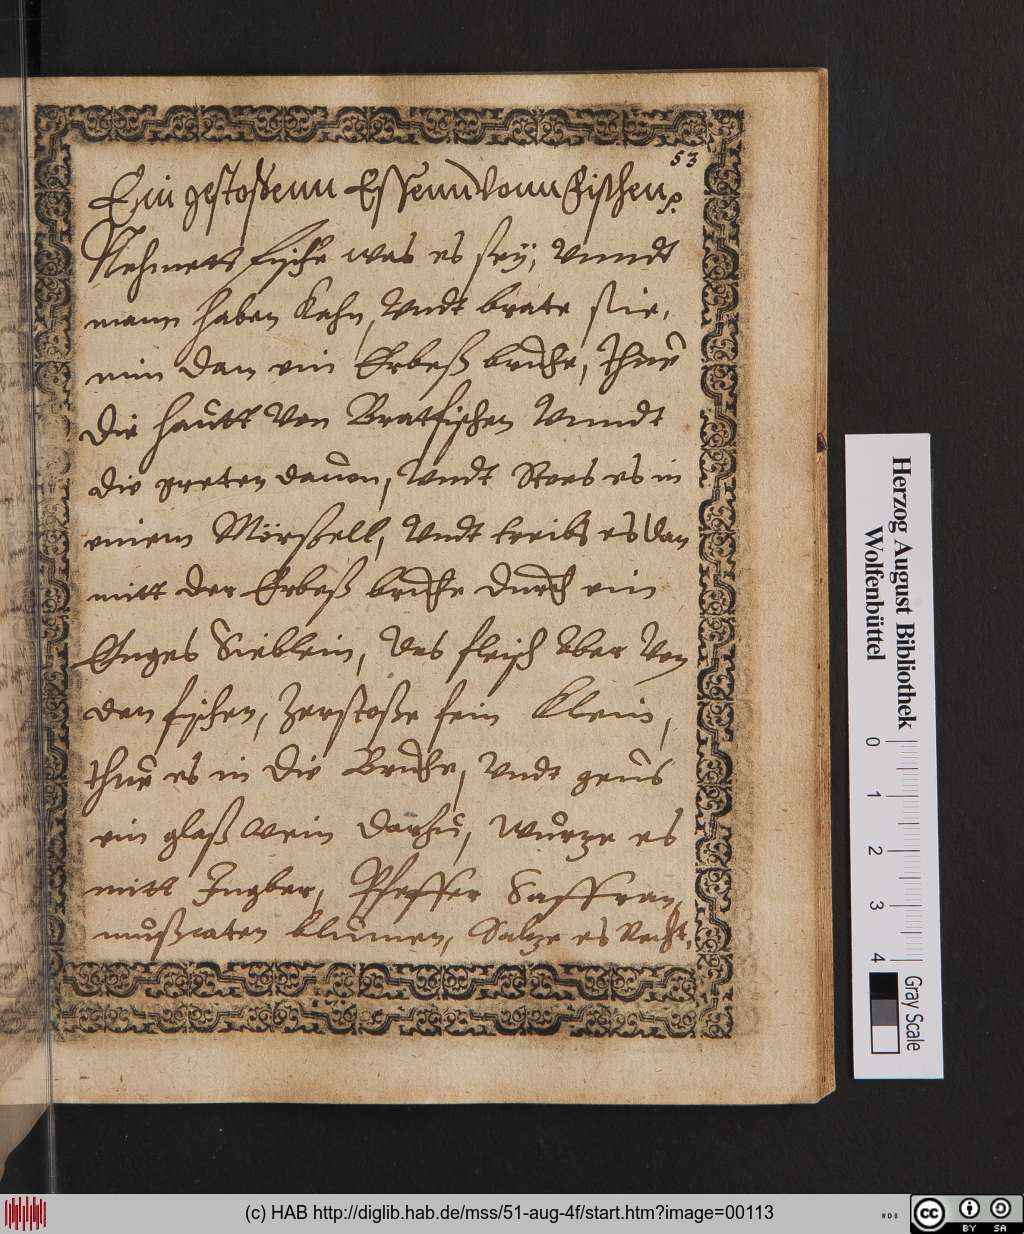 53
Ein gestoßenn Essenn vonn Fischen
Nehmett fische was es seÿ, Vnndt
mann haben kahn, Vndt brate sie,
nim dan ein Erbeß bruhe, thue
die hautt Von Bratfischen Vnndt
die greten dauon, Vndt Stoes es in
einem Mörßell, Vndt treibs es dan
mitt der Erbeß bruhe durch ein
Enges Sieblein, das fleisch aber Von
den fischen, Zerstoße fein klein,
thue es in die Bruhe, Vndt geus
ein glaß Wein darzu, wurze es
mitt Ingber, Pfeffer Saffran,
mußcaten blumen, Saltze es Recht,
Herzog August Bibliothek
Wolfenbüttel
0 1 2 3 4
Gray Scale
(c) HAB http://diglib.hab.de/mss/51-aug-4f/start.htm?image=00113
WDB
HAB
cc
BY SA